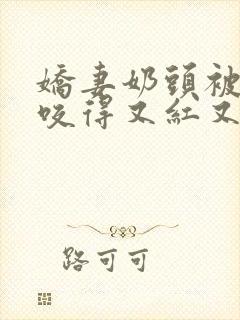 嬌妻奶頭被
咬得又紅又
路可可